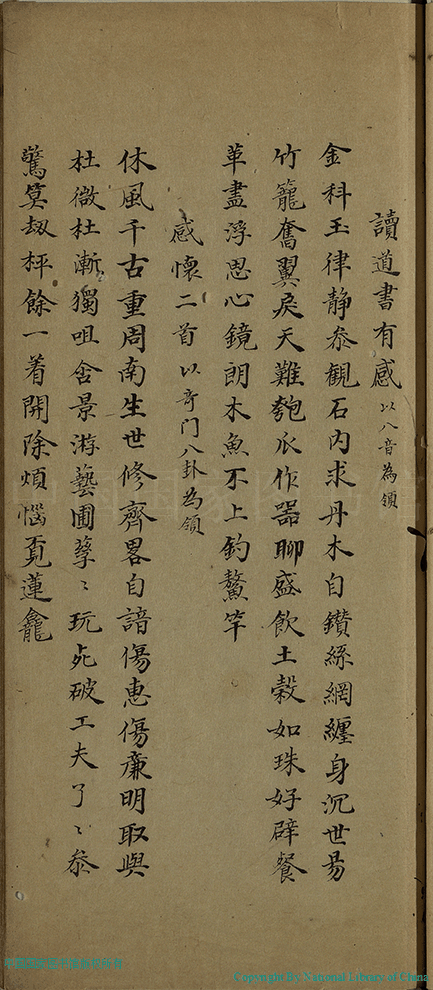 讀道書有感 以八音為領
金科玉律静叅觀石内求丹木自鑽絲網纏身沉世易
竹籠奮翼戾天難匏瓜作器聊盛飲土榖如珠好辟餐
革盡浮思心鏡朗木魚不上釣鰲竿
感懷二首 以奇门八卦為領
休風千古重周南生世修齊畧自諳傷惠傷亷明取與
杜微杜漸獨咀含景游藝圃孳〻玩死破工夫了〻叅
驚筭刼枰餘一着開除煩惱覔蓮龕
Copyright By National Library of China